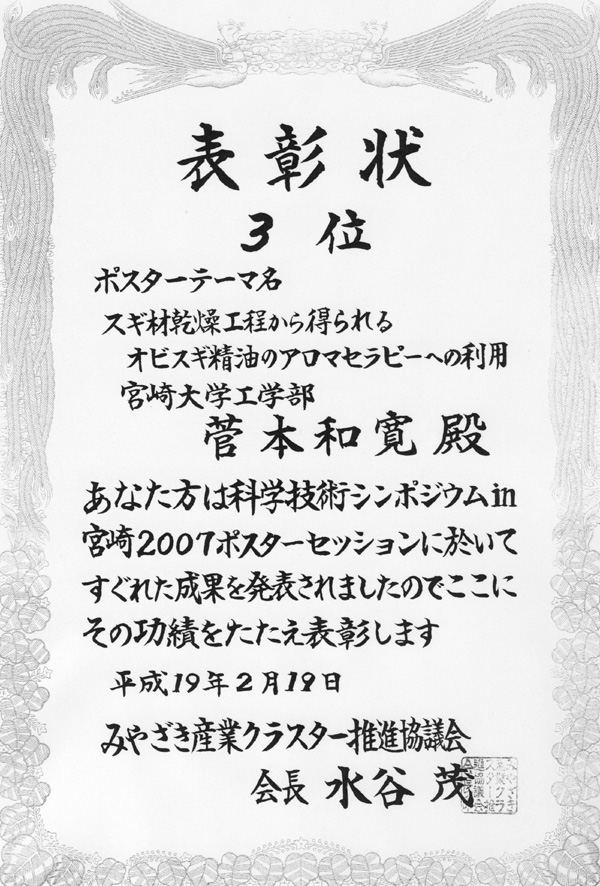 表彰状
3位
ポスターテーマ名
スギ材乾燥工程から得られる
オビスギ精油のアロマセラピーへの利用
宮崎大学工学部
菅本和寛殿
あなた方は科学技術シンポジウムin
宮崎2007ポスターセッションに於いて
すぐれた成果を発表されましたのでここに
その功績をたたえ表彰します
平成19年2月19日
みやざき産業クラスター推進協議会
会長 水谷茂